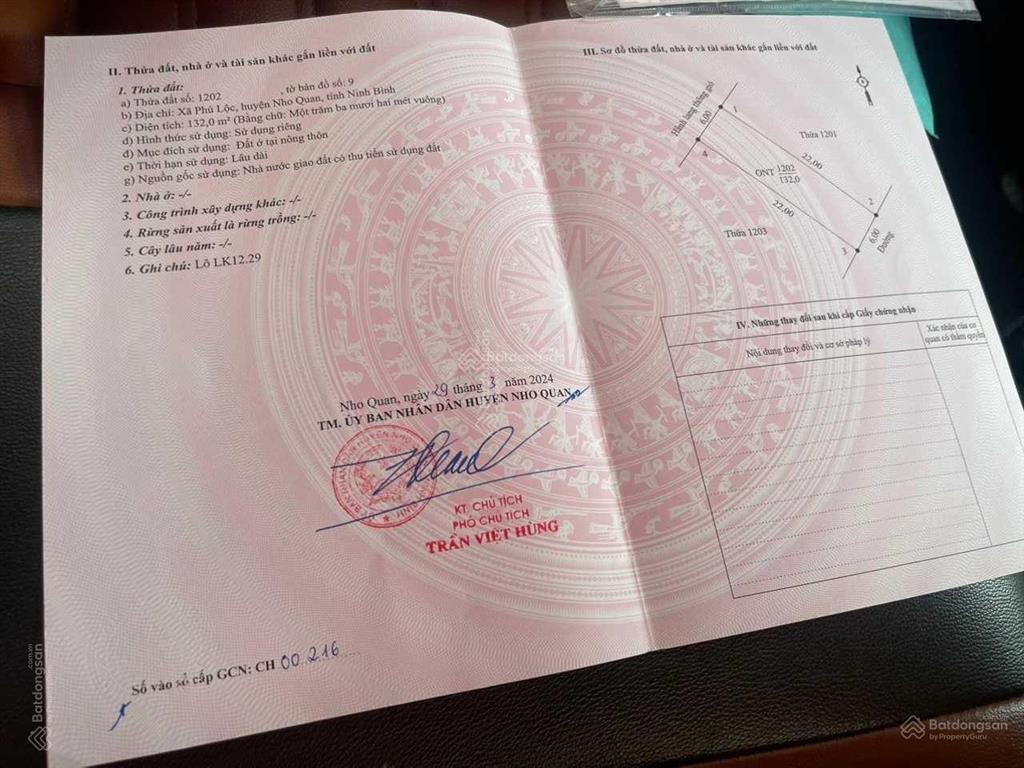 II. Thửa đất, nhà ở và tài sản khác gắn liền với đất
1. Thửa đất:
a) Thửa đất số: 1202 , tờ bản đồ số: 9
b) Địa chỉ: Xã Phú Lộc, huyện Nho Quan, tỉnh Ninh Bình
c) Diện tích: 132,0 m² (Bằng chữ: Một trăm ba mươi hai mét vuông)
d) Hình thức sử dụng: Sử dụng riêng
đ) Mục đích sử dụng: Đất ở tại nông thôn
e) Thời hạn sử dụng: Lâu dài
g) Nguồn gốc sử dụng: Nhà nước giao đất có thu tiền sử dụng đất
2. Nhà ở: -/-
3. Công trình xây dựng khác: -/-
4. Rừng sản xuất là rừng trồng: -/-
5. Cây lâu năm: -/-
6. Ghi chú: Lô LK12.29
Nho Quan, ngày 29 tháng 3 năm 2024
TM. ỦY BAN NHÂN DÂN HUYỆN NHO QUAN
KT. CHỦ TỊCH
PHÓ CHỦ TỊCH
TRẦN VIỆT HÙNG
Số vào sổ cấp GCN: CH 00216
III. Sơ đồ thửa đất, nhà ở và tài sản khác gắn liền với đất
Hành lang thông gió
6,00
1
4
Thửa 1201
22,00
ONT 1202
132,0
22,00
2
Thửa 1203
3
6,00
Đường
IV. Những thay đổi sau khi cấp Giấy chứng nhận
Nội dung thay đổi và cơ sở pháp lý
Xác nhận của cơ
quan có thẩm quyền
Batdongsan
Batdongsan
.com.vn
Batdongsan
by PropertyGuru